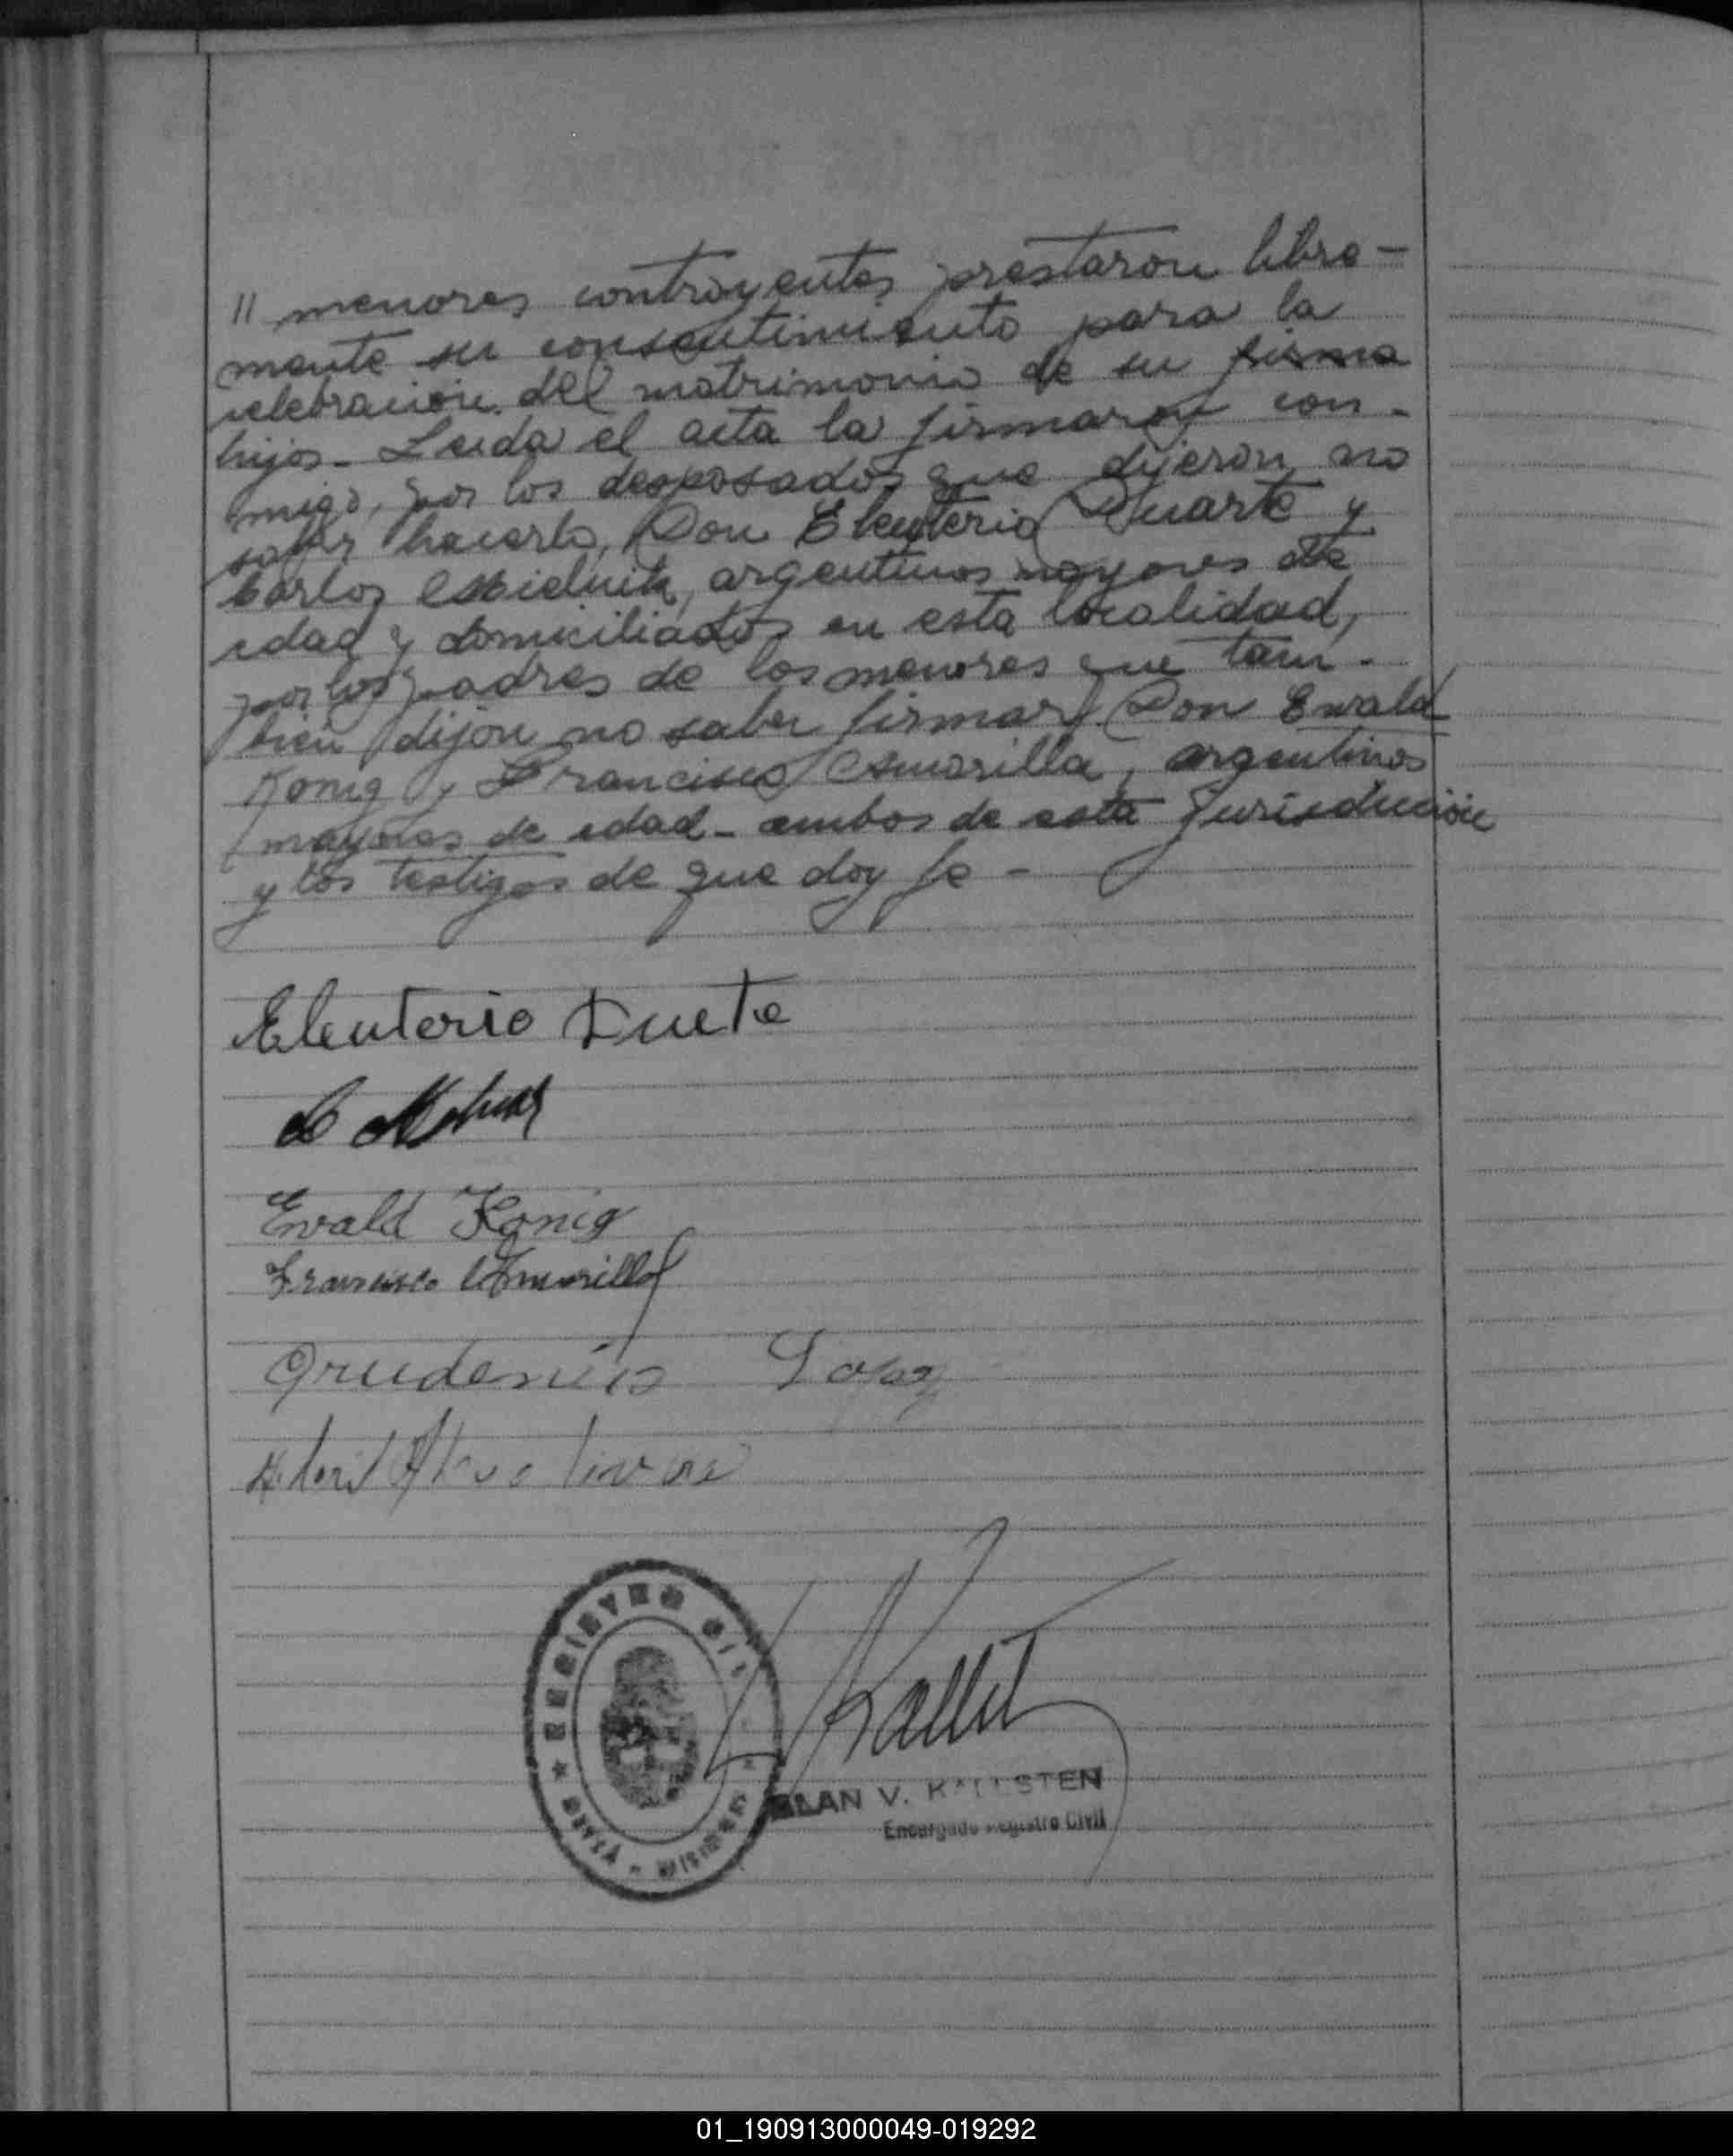 " menores contrayentes prestaron libre-
mente su consentimiento para la
celebracion del matrimonio de su firma
hijos - Leida el acta la firmaron con-
migo, por los desposados que dijeron no
saber hacerlo, Don Eleuterio Duarte y
Carlos argentinos mayores de
edad y domiciliados en esta localidad,
por los padres de los menores que tam-
bien dijon no saber firmar Don Ewald
Konig y Francisco Amarilla, argentinos
mayores de edad - ambos de esta jurisdiccion
y los testigos de que doy fe -
Eleuterio Duete
Ewald Konig
Francisco Amarilla
REGISTRO CIVIL
MISIONES
ALAN V. KALLSTEN
Encargado Registro Civil
01_190913000049-019292